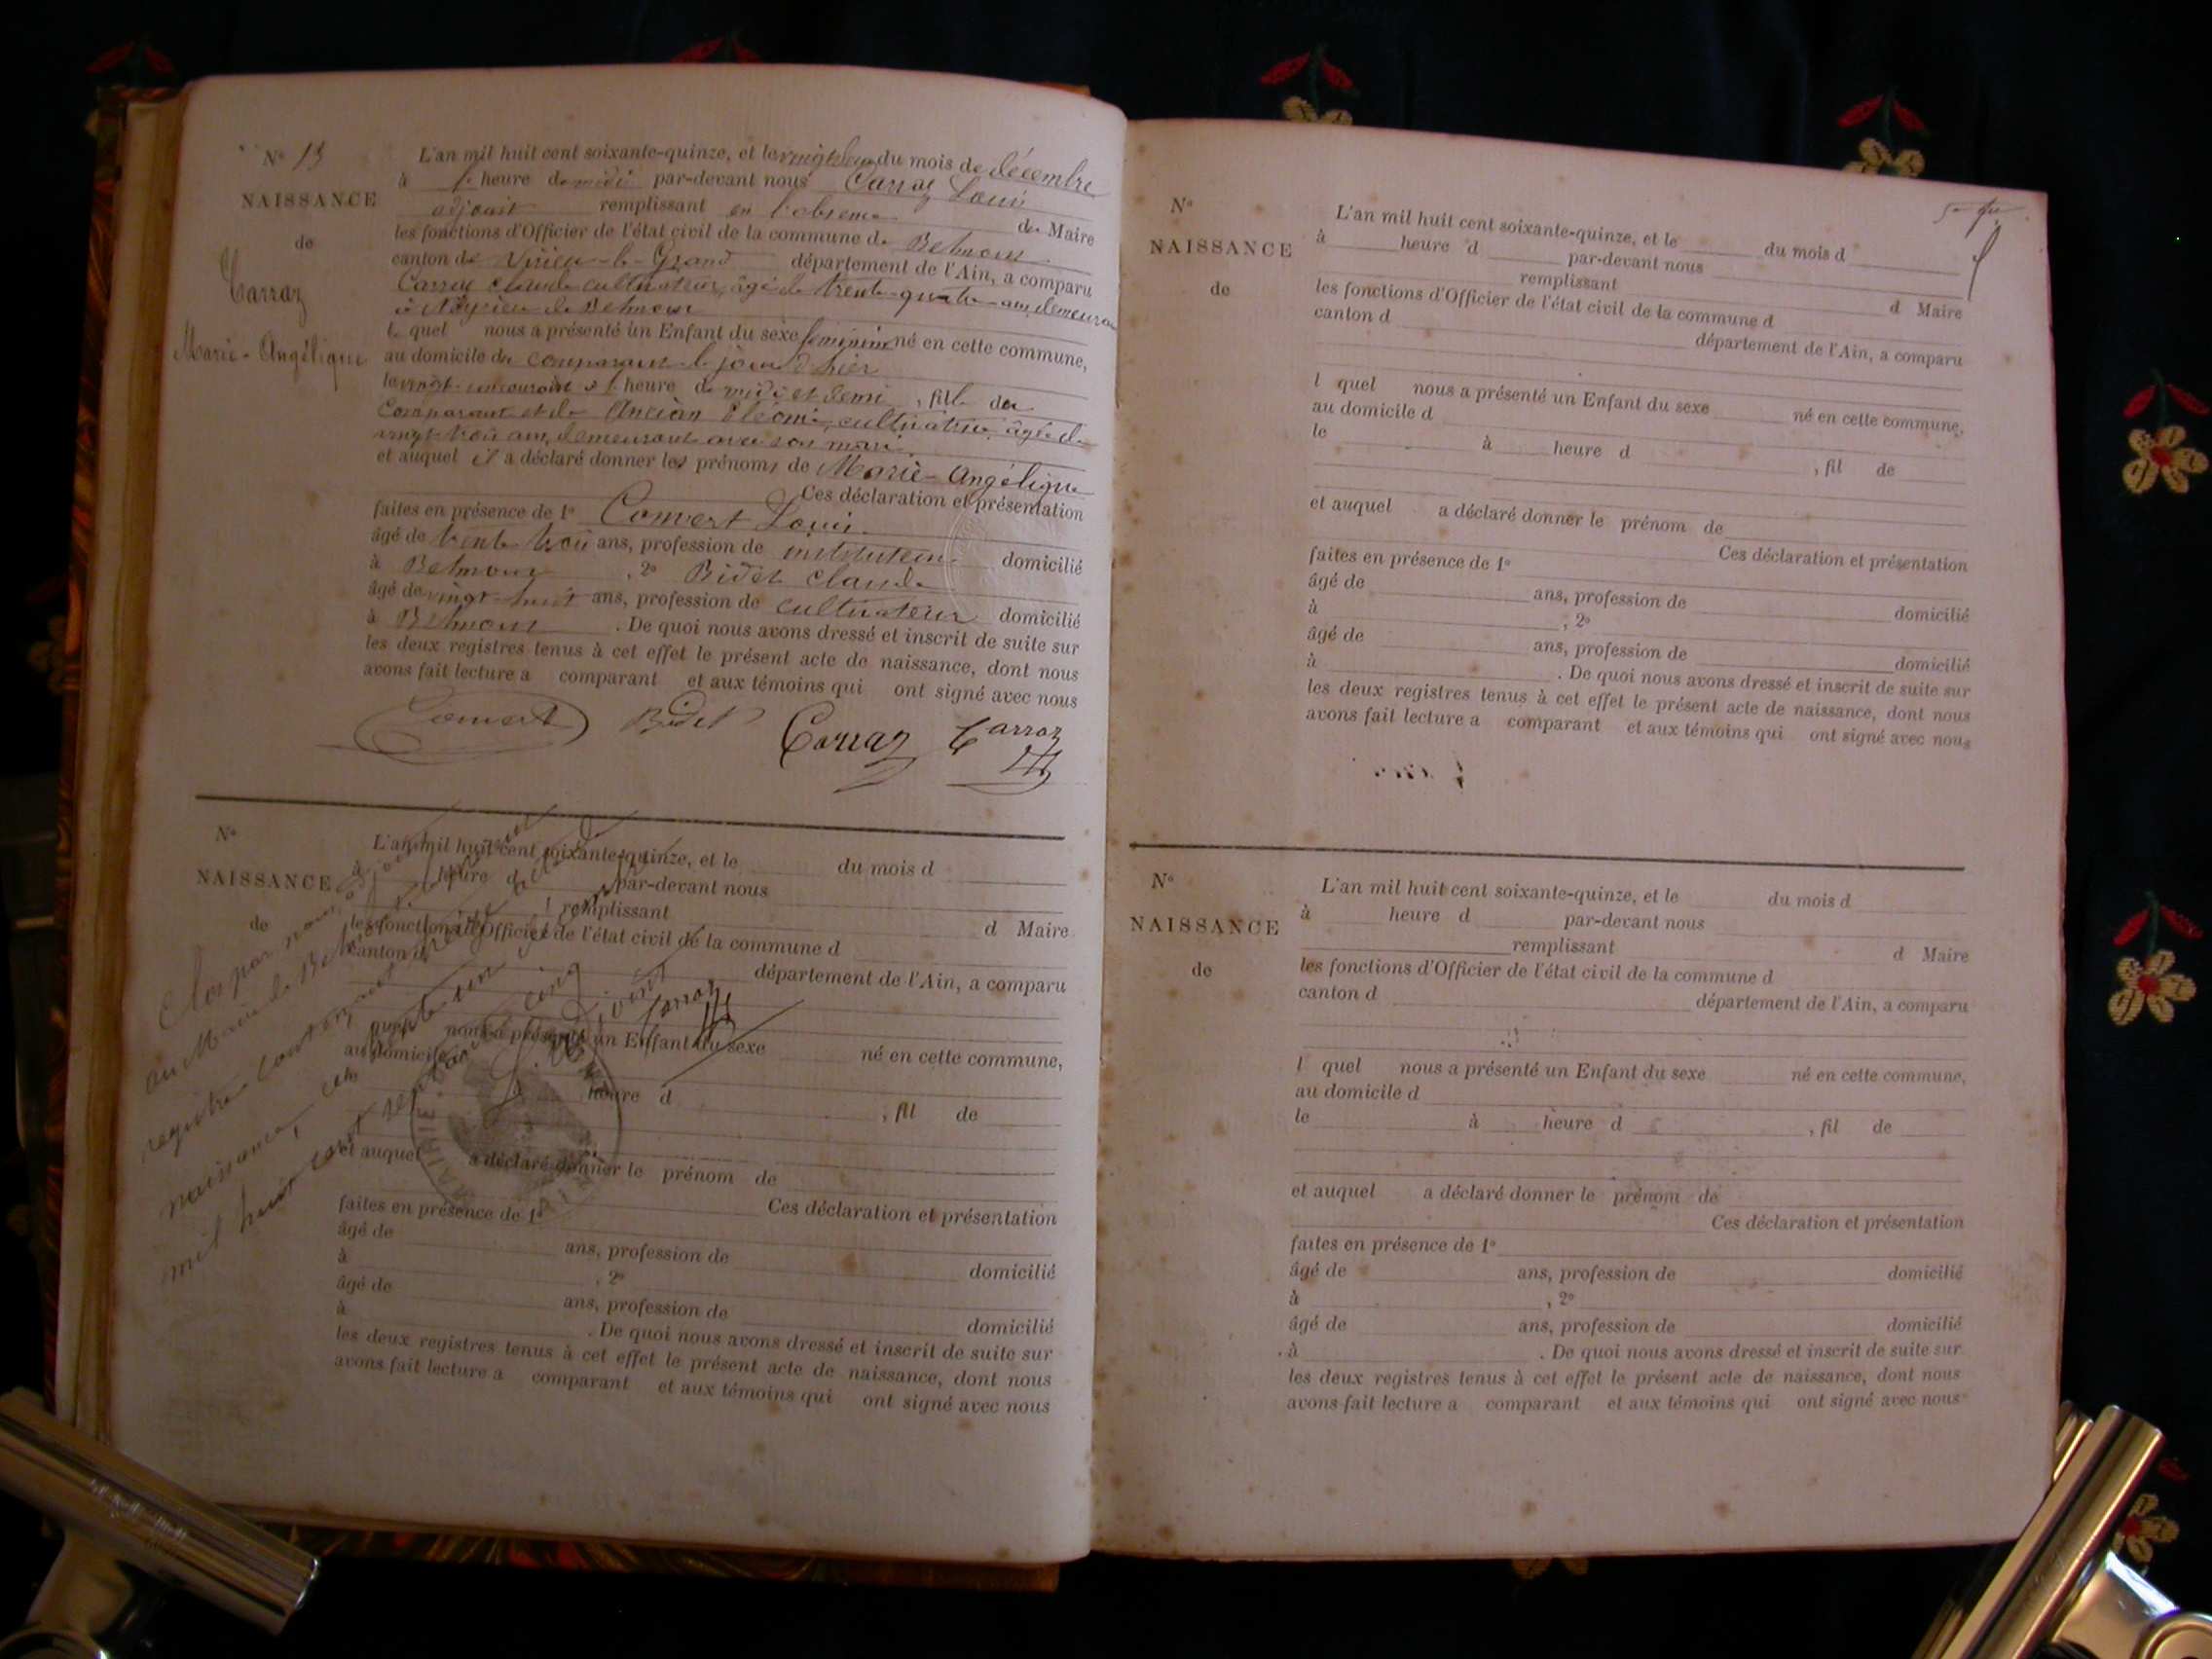 N° 13
NAISSANCE
de
Carraz
Marie-Angélique
L'an mil huit cent soixante-quinze, et le vingt deux du mois de décembre
à 1 heure de midi par-devant nous Carraz Louis
adjoint remplissant en l'absence du Maire
les fonctions d'Officier de l'état civil de la commune de Belmont
canton de Virieu-le-Grand département de l'Ain, a comparu
Carraz Claude cultivateur, âgé de trente-quatre ans, demeurant
à de Belmont
le quel nous a présenté un Enfant du sexe féminin né en cette commune,
au domicile du comparant le jour d'hier
le vingt-un courant à 1 heure de midi et demi, fille du
Comparant et de Ancian cultivatrice, âgée de
vingt-trois ans, demeurant avec son mari,
et auquel il a déclaré donner les prénoms de Marie-Angélique
Ces déclaration et présentation
faites en présence de 1° Convert Louis
âgé de trente trois ans, profession de instituteur domicilié
à Belmont, 2° Bidet Claude
âgé de vingt-huit ans, profession de cultivateur domicilié
à Belmont. De quoi nous avons dressé et inscrit de suite sur
les deux registres tenus à cet effet le présent acte de naissance, dont nous
avons fait lecture a comparant et aux témoins qui ont signé avec nous
Convert Bidet Carraz Carraz
N°
NAISSANCE
de
L'an mil huit cent soixante-quinze, et le du mois d
à heure d par-devant nous
remplissant d Maire
les fonctions d'Officier de l'état civil de la commune d
canton d
département de l'Ain, a comparu
nous a présenté un Enfant du sexe né en cette commune,
au domicile
heure d , fil de
et auquel a déclaré donner le prénom de
Ces déclaration et présentation
faites en présence de 1°
âgé de ans, profession de domicilié
à , 2°
âgé de ans, profession de domicilié
à . De quoi nous avons dressé et inscrit de suite sur
les deux registres tenus à cet effet le présent acte de naissance, dont nous
avons fait lecture a comparant et aux témoins qui ont signé avec nous
Clos par nous adjoint
au Maire de Belmont
registre contenant
naissances
mil huit cent soixante cinq
L'adjoint
Carraz
MAIRIE
N°
NAISSANCE
de
L'an mil huit cent soixante-quinze, et le du mois d
à heure d par-devant nous
remplissant d Maire
les fonctions d'Officier de l'état civil de la commune d
canton d département de l'Ain, a comparu
l quel nous a présenté un Enfant du sexe né en cette commune,
au domicile d
le à heure d , fil de
et auquel a déclaré donner le prénom de
Ces déclaration et présentation
faites en présence de 1°
âgé de ans, profession de domicilié
à , 2°
âgé de ans, profession de domicilié
à . De quoi nous avons dressé et inscrit de suite sur
les deux registres tenus à cet effet le présent acte de naissance, dont nous
avons fait lecture a comparant et aux témoins qui ont signé avec nous
N°
NAISSANCE
de
L'an mil huit cent soixante-quinze, et le du mois d
à heure d par-devant nous
remplissant d Maire
les fonctions d'Officier de l'état civil de la commune d
canton d département de l'Ain, a comparu
l quel nous a présenté un Enfant du sexe né en cette commune,
au domicile d
le à heure d , fil de
et auquel a déclaré donner le prénom de
Ces déclaration et présentation
faites en présence de 1°
âgé de ans, profession de domicilié
à , 2°
âgé de ans, profession de domicilié
à . De quoi nous avons dressé et inscrit de suite sur
les deux registres tenus à cet effet le présent acte de naissance, dont nous
avons fait lecture a comparant et aux témoins qui ont signé avec nous